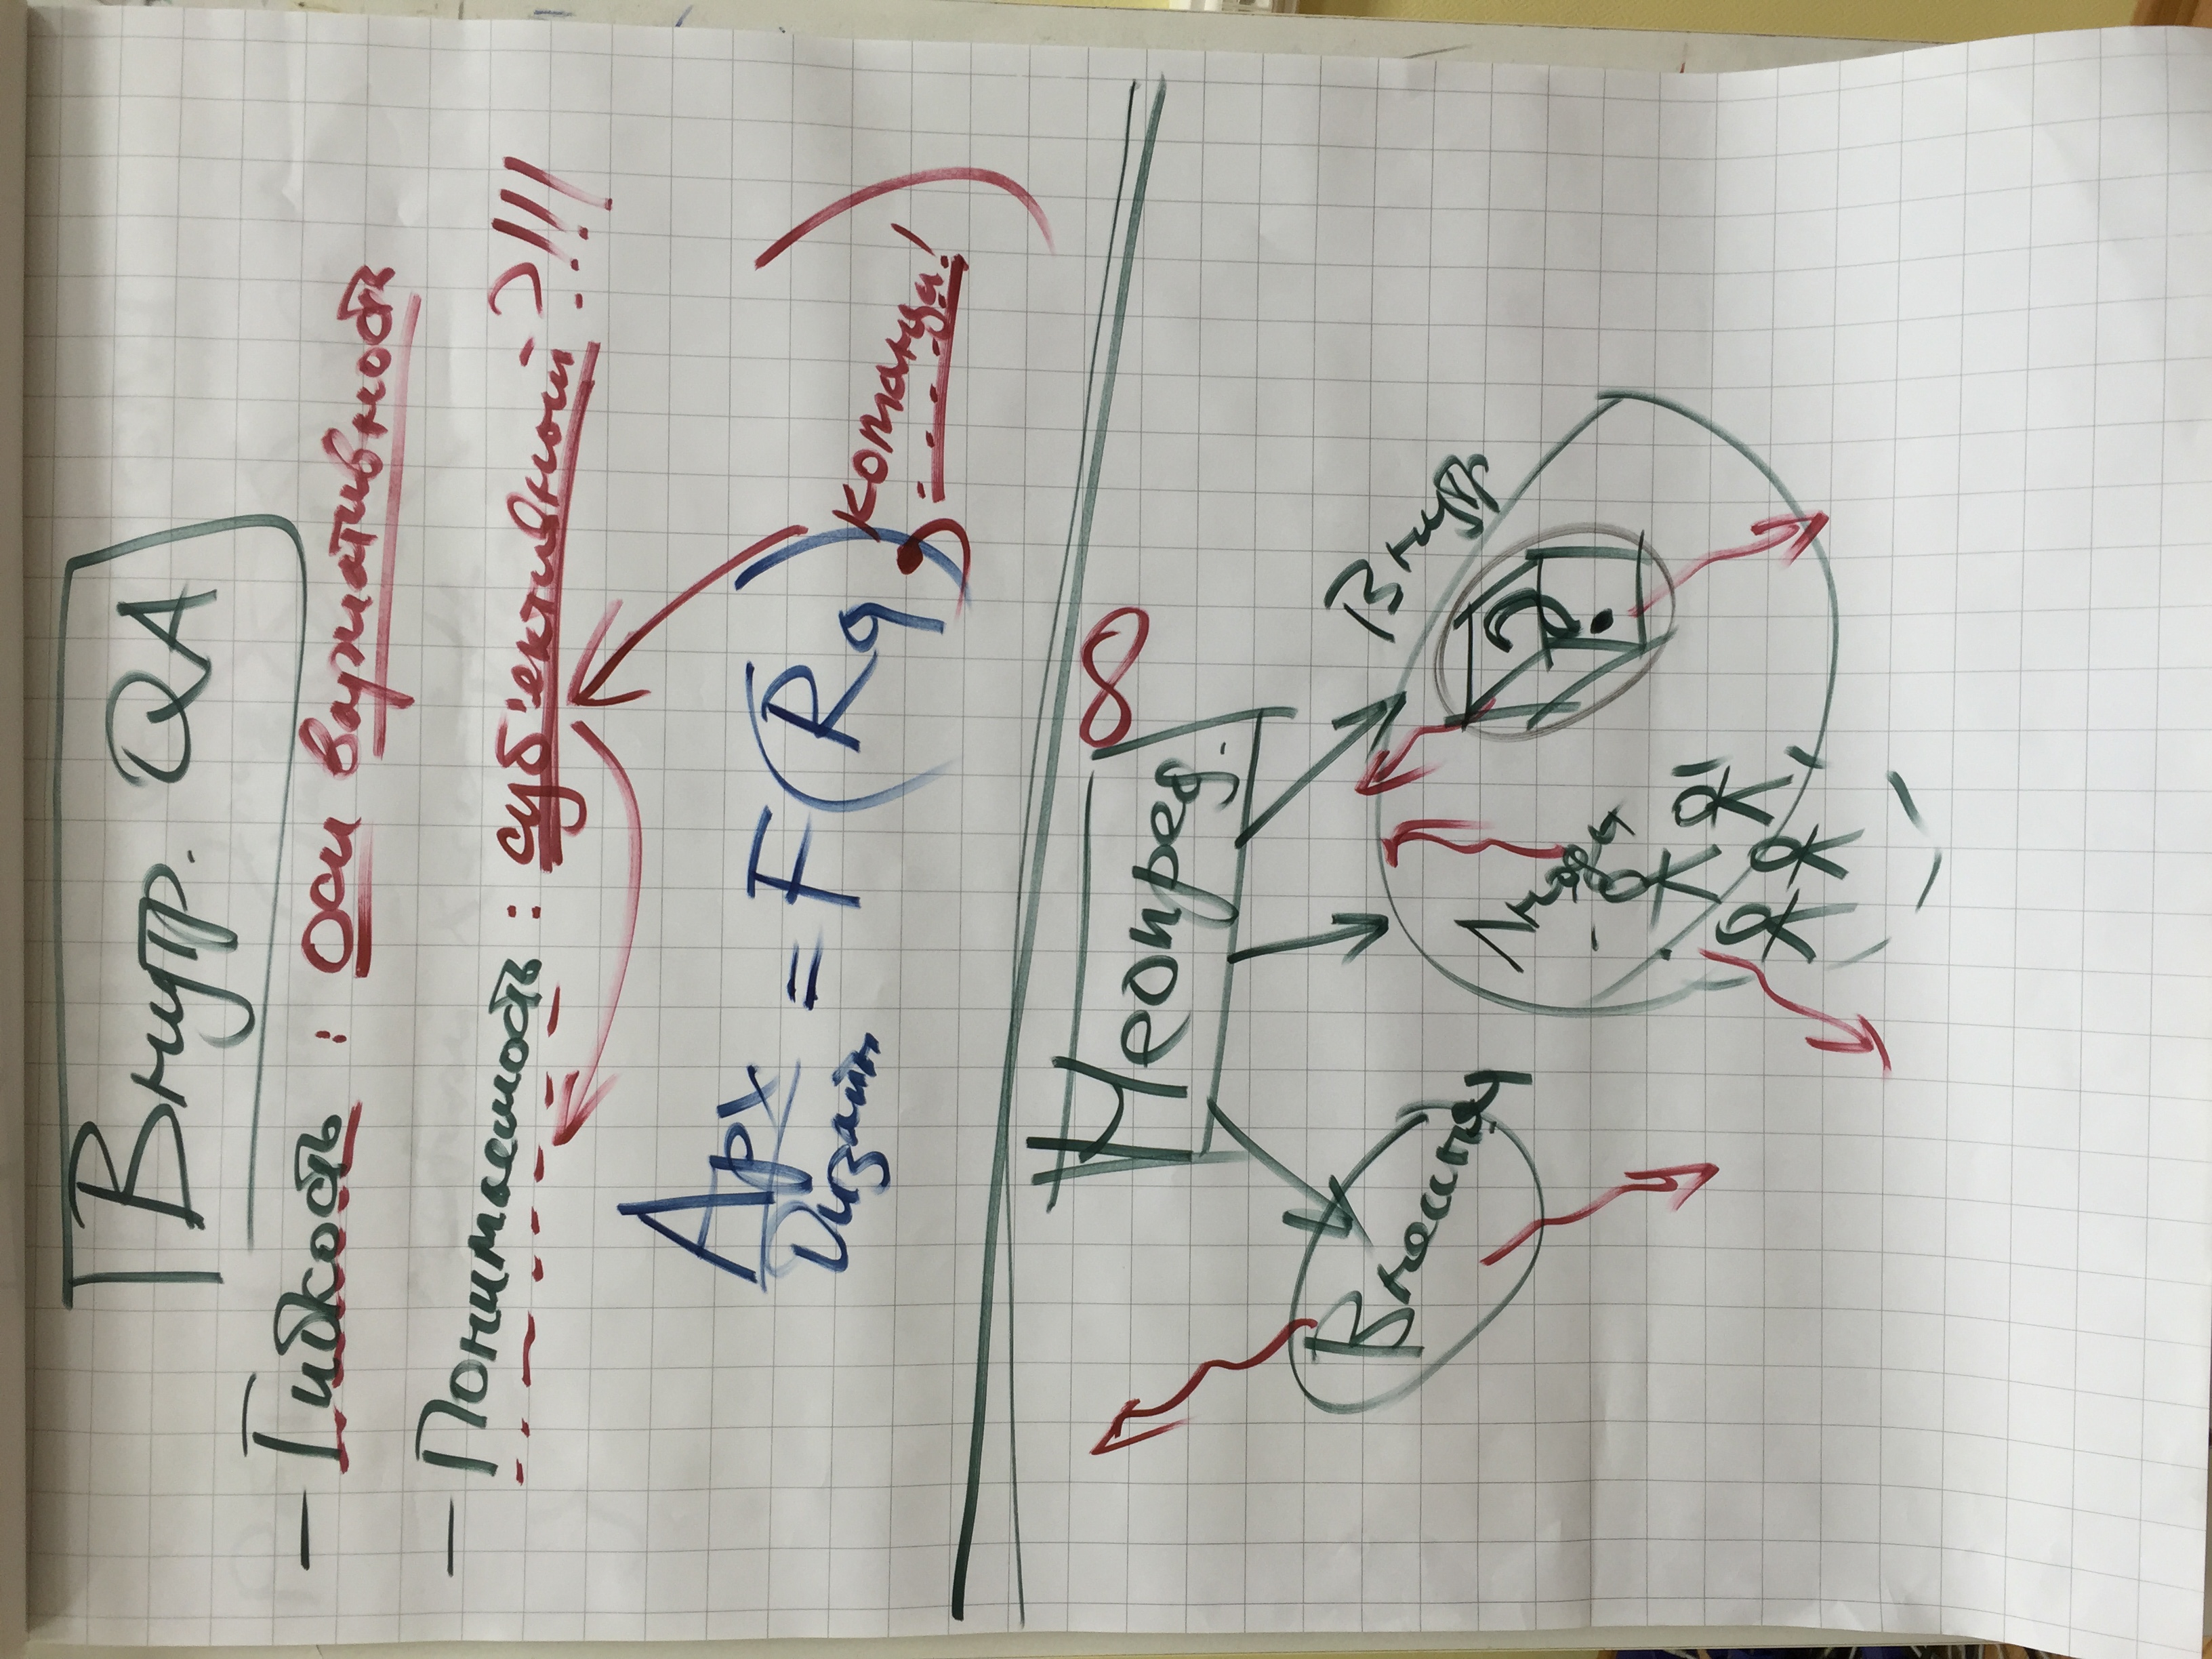 Внутр. QA
– Гибкость : Оси вариативность
– Понимаемость : суб'ективный ?!!!
Арх
Дизайн = F(Rq), команда!)
Неопред. ∞
Внешняя
Внутр
Люди
?